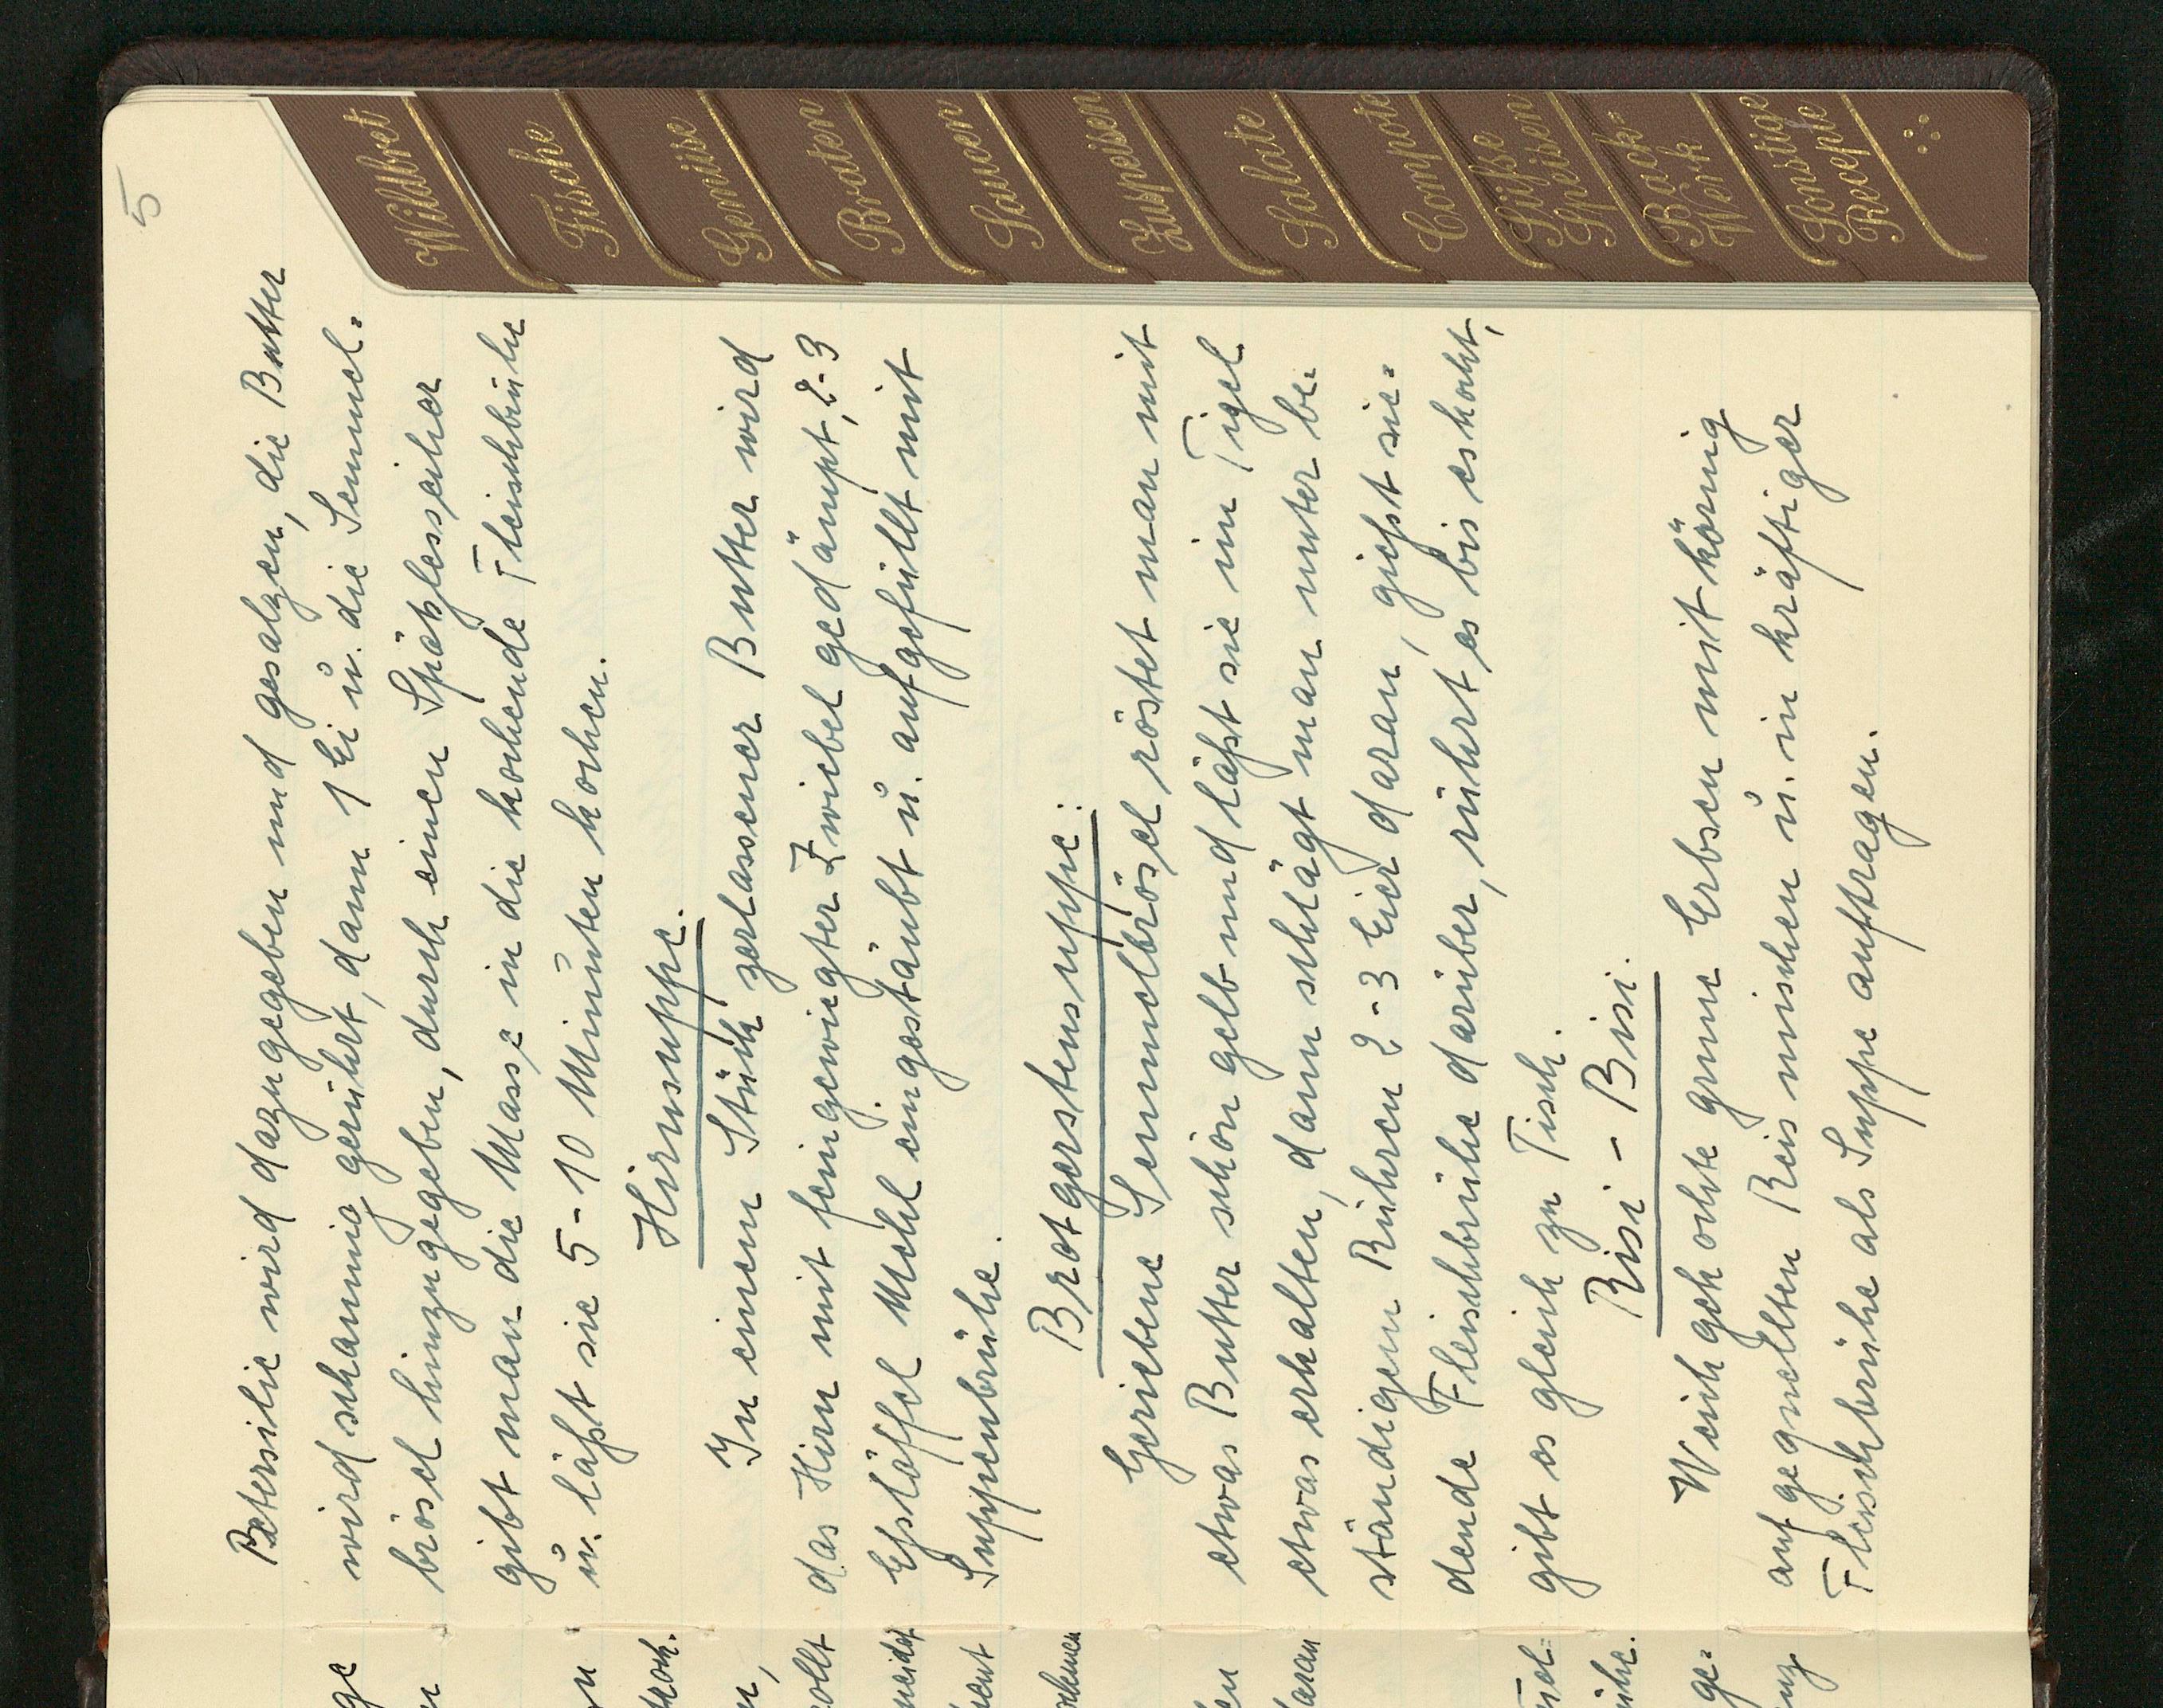 5
Petersilie wird dazugegeben und gesalzen, die Butter
wird schaumig gerührt, dann 1 Ei u. die Semmel=
brösel hinzugegeben, durch einen Spätzlesseiher
gibt man die Masse in die kochende Fleischbrühe
u. läßt sie 5-10 Minuten kochen.
Hirnsuppe.
In einem Stück zerlassener Butter wird
das Hirn mit feingewiegter Zwiebel gedämpt, 2-3
Eßlöffel Mehl eingestäubt u. aufgefüllt mit
Suppenbrühe.
Brotgerstensuppe:
Geriebene Semmelbrösel röstet man mit
etwas Butter schön gelb und läßt sie im Tigel
etwas erkalten, dann schlägt man unter be=
ständigem Rühren 2-3 Eier daran, gießt sie=
dende Fleischbrühe darüber, rührt es bis es kocht,
gibt es gleich zu Tisch.
Risi - Bisi.
Weich gekochte grune Erbsen mit körnig
aufgequellten Reis mischen u. in kräftiger
Fleischbrühe als Suppe auftragen.
Wildbret
Fische
Gemüse
Braten
Saucen
Zuspeisen
Salate
Compote
Süße
Speisen
Back=
Werk
Sonstige
Recepte